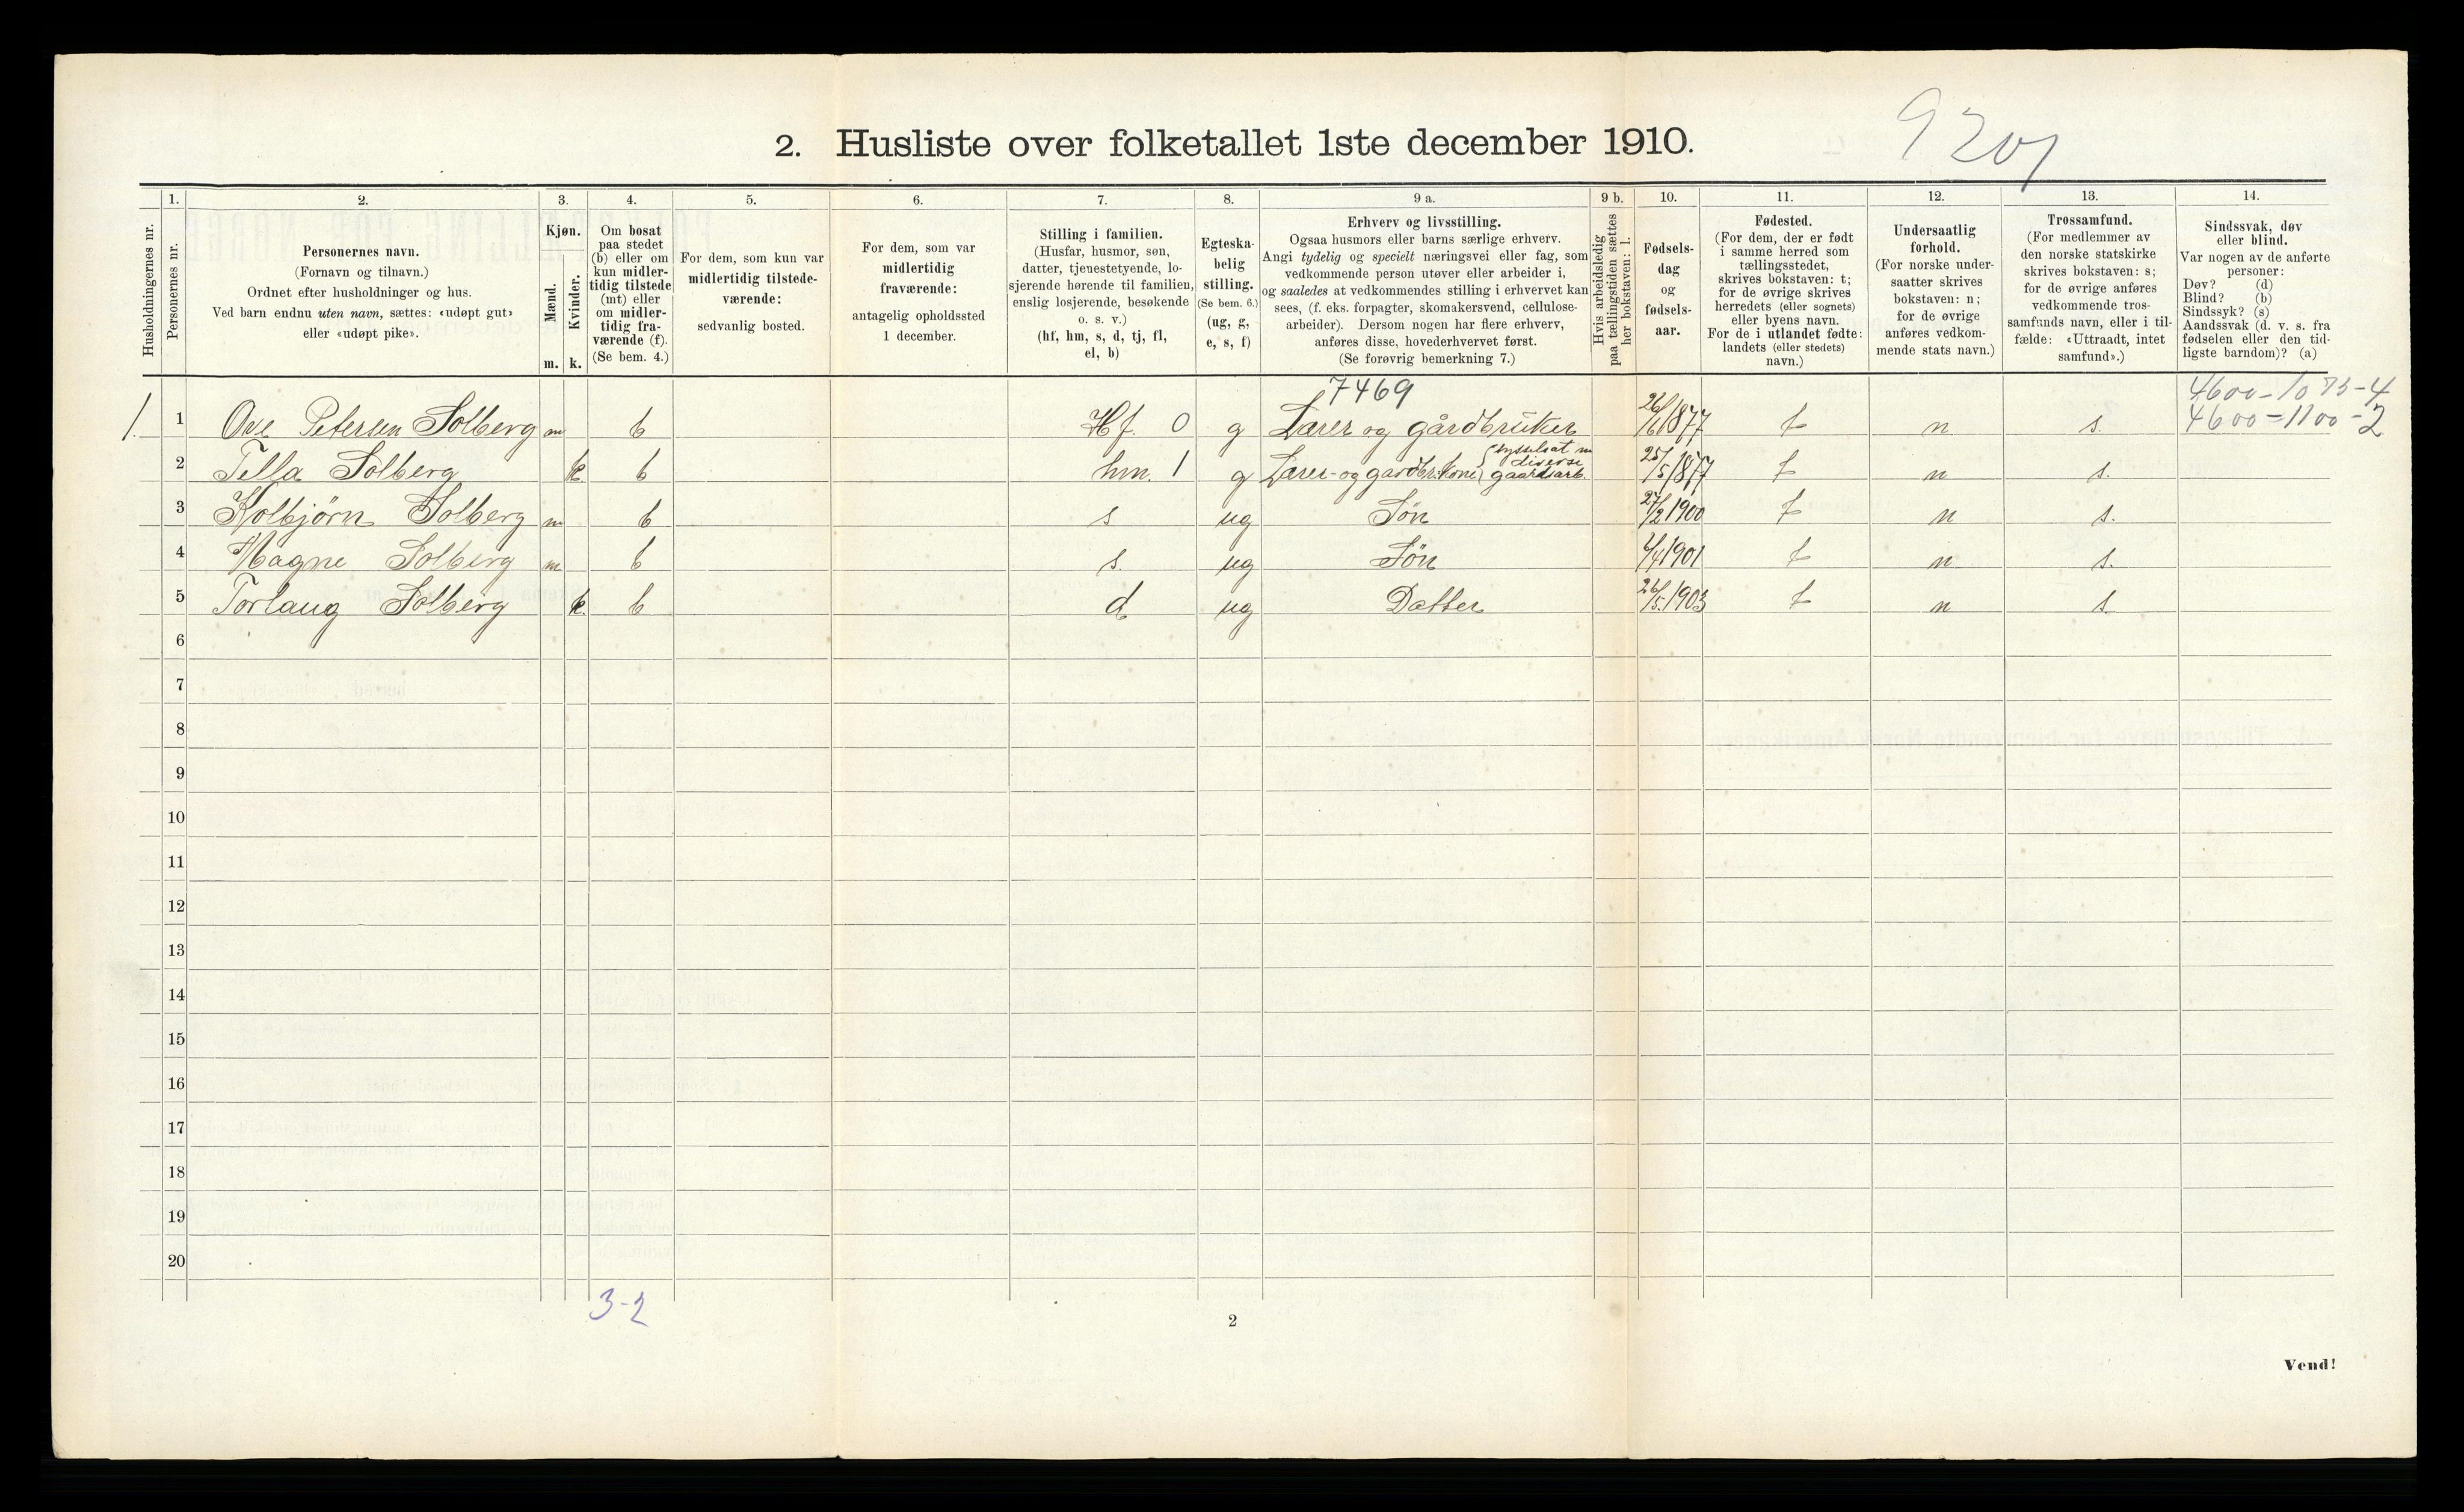 9201
2. Husliste over folketallet 1ste december 1910.
1. 2. 3. 4. 5. 6. 7. 8. 9 a. 9 b. 10. 11. 12. 13. 14.
Husholdningernes nr.
Personernes nr.
Personernes navn.
(Fornavn og tilnavn.)
Ordnet efter husholdninger og hus.
Ved barn endnu uten navn, sættes: «udøpt gut»
eller «udøpt pike».
Kjøn.
Mænd.
Kvinder.
m. k.
Om bosat
paa stedet
(b) eller om
kun midler-
tidig tilstede
(mt) eller
om midler-
tidig fra-
værende (f).
(Se bem. 4.)
For dem, som kun var
midlertidig tilstede-
værende:
sedvanlig bosted.
For dem, som var
midlertidig
fraværende:
antagelig opholdssted
1 december.
Stilling i familien.
(Husfar, husmor, søn,
datter, tjenestetyende, lo-
sjerende hørende til familien,
enslig losjerende, besøkende
o. s. v.)
(hf, hm, s, d, tj, fl,
el, b)
Egteska-
belig
stilling.
(Se bem. 6.)
(ug, g,
e, s, f)
Erhverv og livsstilling.
Ogsaa husmors eller barns særlige erhverv.
Angi tydelig og specielt næringsvei eller fag, som
vedkommende person utøver eller arbeider i,
og saaledes at vedkommendes stilling i erhvervet kan
sees, (f. eks. forpagter, skomakersvend, cellulose-
arbeider). Dersom nogen har flere erhverv,
anføres disse, hovederhvervet først.
(Se forøvrig bemerkning 7.)
Hvis arbeidsledig
paa tællingstiden sættes
her bokstaven: l.
Fødsels-
dag
og
fødsels-
aar.
Fødested.
(For dem, der er født
i samme herred som
tællingsstedet,
skrives bokstaven: t;
for de øvrige skrives
herredets (eller sognets)
eller byens navn.
For de i utlandet fødte:
landets (eller stedets)
navn.)
Undersaatlig
forhold.
(For norske under-
saatter skrives
bokstaven: n;
for de øvrige
anføres vedkom-
mende stats navn.)
Trossamfund.
(For medlemmer av
den norske statskirke
skrives bokstaven: s;
for de øvrige anføres
vedkommende tros-
samfunds navn, eller i til-
fælde: «Uttraadt, intet
samfund».)
Sindssvak, døv
eller blind.
Var nogen av de anførte
personer:
Døv? (d)
Blind? (b)
Sindssyk? (s)
Aandssvak (d. v. s. fra
fødselen eller den tid-
ligste barndom)? (a)
7469 4600-1075-4
1. 1 Ove Petersen Solberg m b Hf. 0 g Lærer og gårdbruker 26/6 1877 t n s. 4600-1100-2
2 Tella Solberg k b hm. 1 g Lærer- og gardbr.kone sysselsat m diverse gaardsarb. 25/5 1877 t n s.
3 Kolbjörn Solberg m b s ug Sön 27/2 1900 t n s.
4 Magne Solberg m b s. ug Sön 1901 t n s.
5 Torlaug Solberg k. b d ug Datter 26/5. 1903 t n s.
6
7
8
9
10
11
12
13
14
15
16
17
18
19
20
3-2
2
Vend!